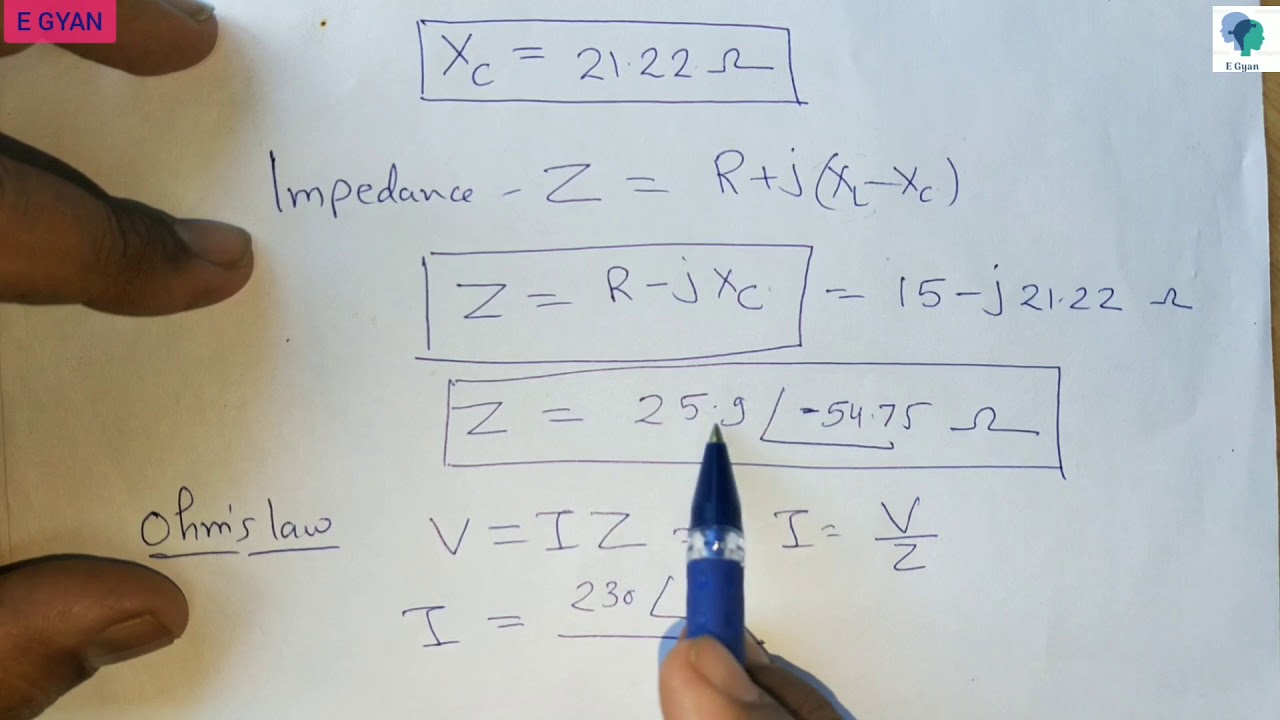 E GYAN
E Gyan
X_C = 21.22 Ω
Impedance - Z = R+j(X_L-X_C)
Z = R-jX_C = 15-j21.22 Ω
Z = 25.9 ∠-54.75 Ω
Ohm's law V=IZ = I= V/Z
I = 230∠